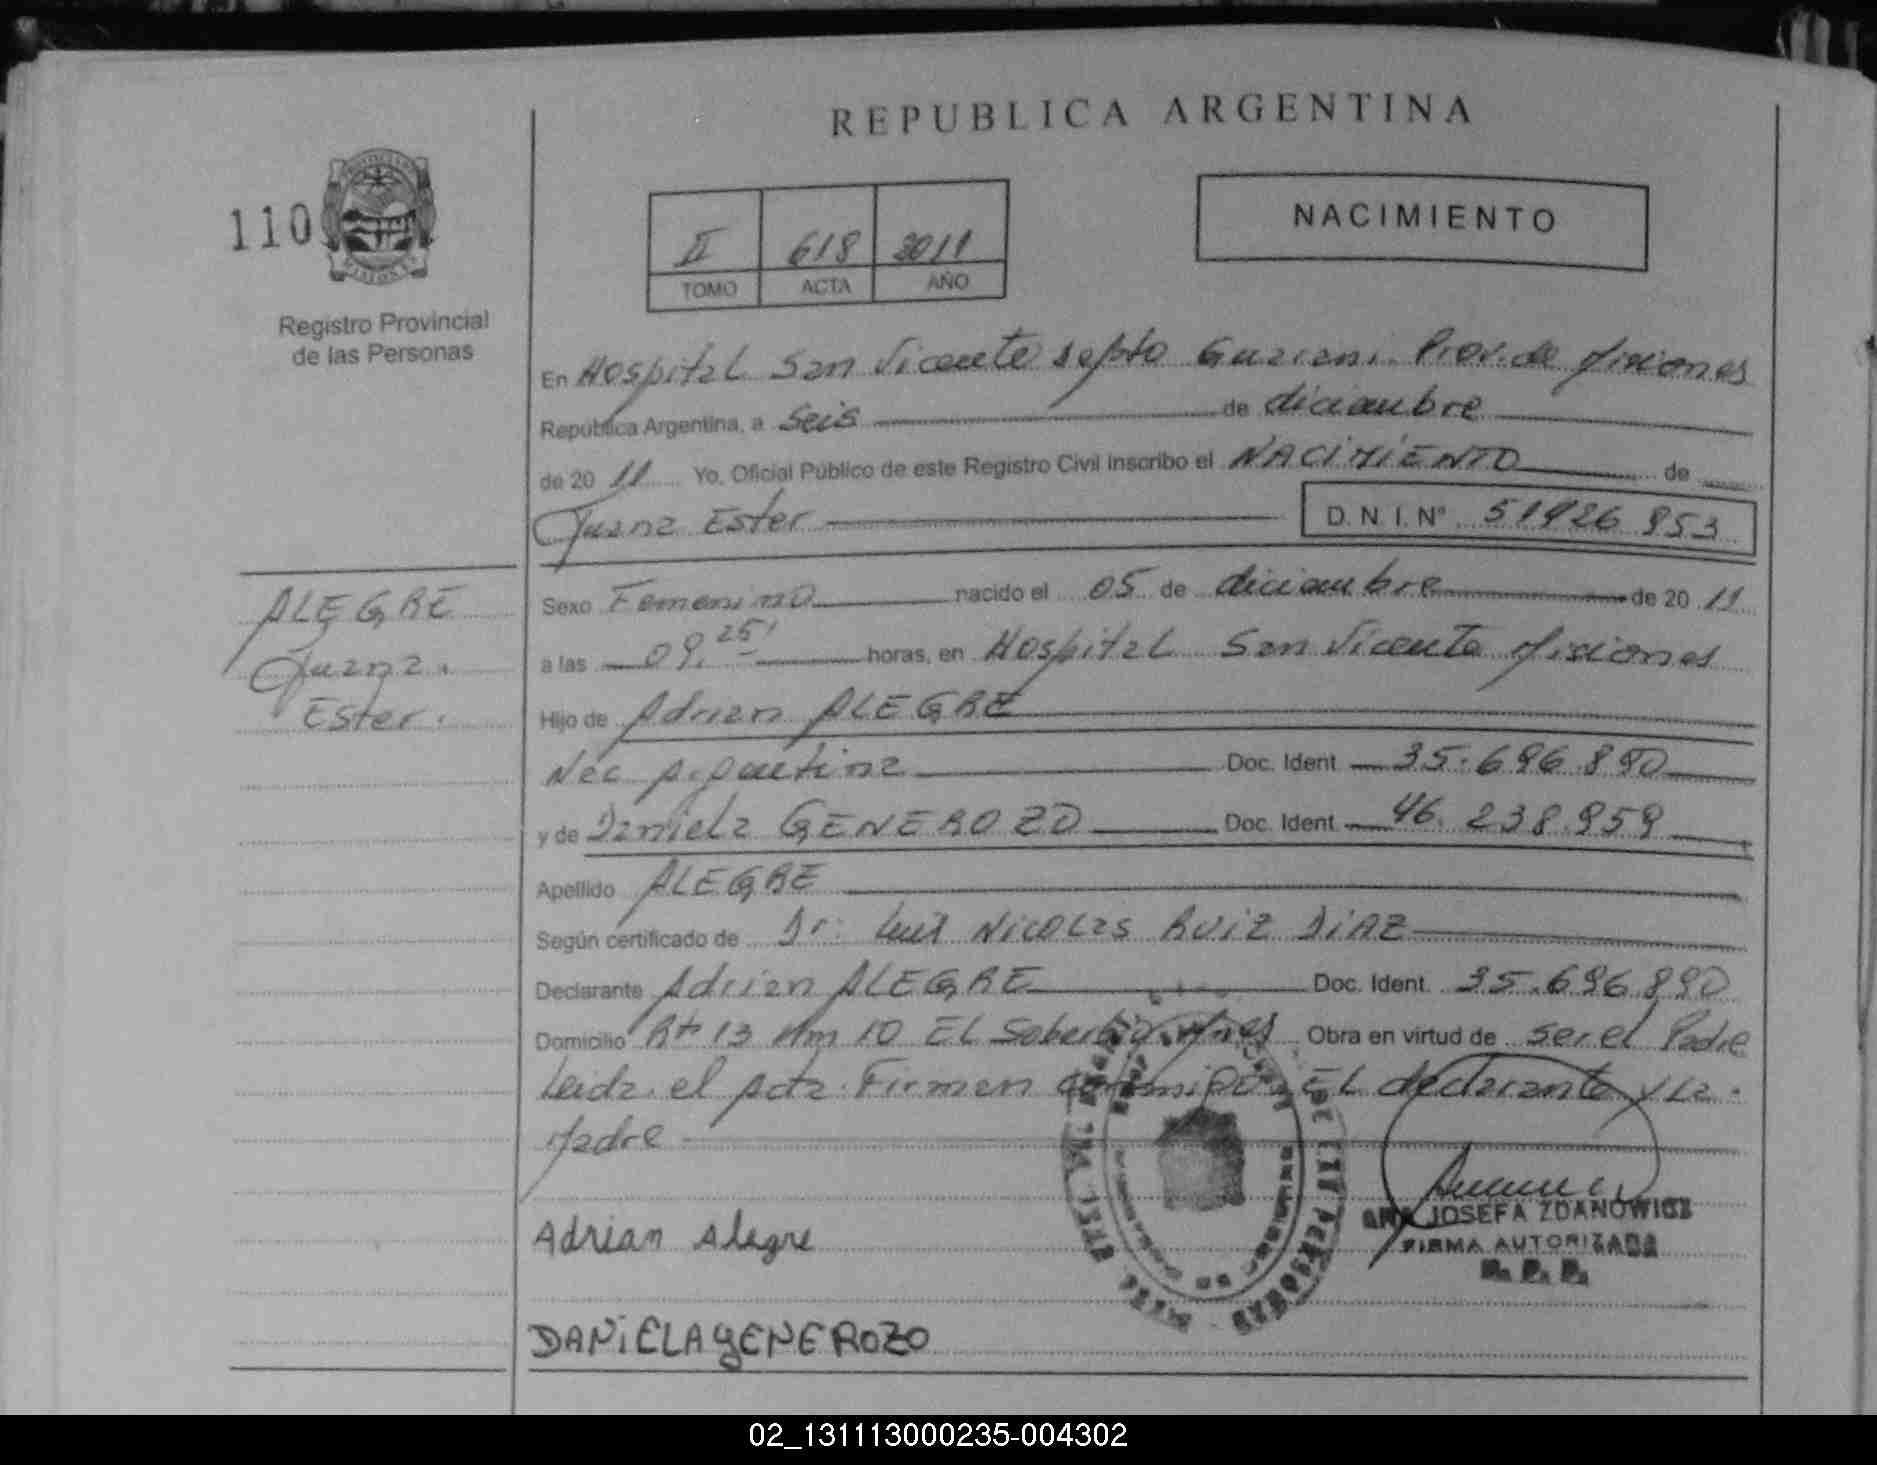 REPUBLICA ARGENTINA
110
NACIMIENTO
II 618 2011
TOMO ACTA AÑO
Registro Provincial
de las Personas
En Hospital San Vicente Depto Guarani. Prov. de Misiones
República Argentina, a Seis de diciembre
de 20 11 Yo, Oficial Público de este Registro Civil inscribo el NACIMIENTO de
Juana Ester D. N. I. Nº 51926 953
ALEGRE
Juana.
Ester.
Sexo Femenino nacido el 05 de diciembre de 20 11
a las 09.25' horas, en Hospital San Vicente Misiones
Hijo de Adrian ALEGRE
Nac Argentina Doc. Ident 35.696.890
y de Daniela GENEROZO Doc. Ident 46.238.959
Apellido ALEGRE
Según certificado de Dr. Luis Nicolas RUIZ DIAZ
Declarante Adrian ALEGRE Doc. Ident. 35.696.890
Domicilio Rt 13 Km 10 EL Soberbio Mnes Obra en virtud de ser el Padre
Leida el Acta Firman conmigo EL declarante y La
Madre
Adrian Alegre
JOSEFA ZDANOWICZ
FIRMA AUTORIZADA
R. P. P.
DANiELA GENEROZO
02_131113000235-004302